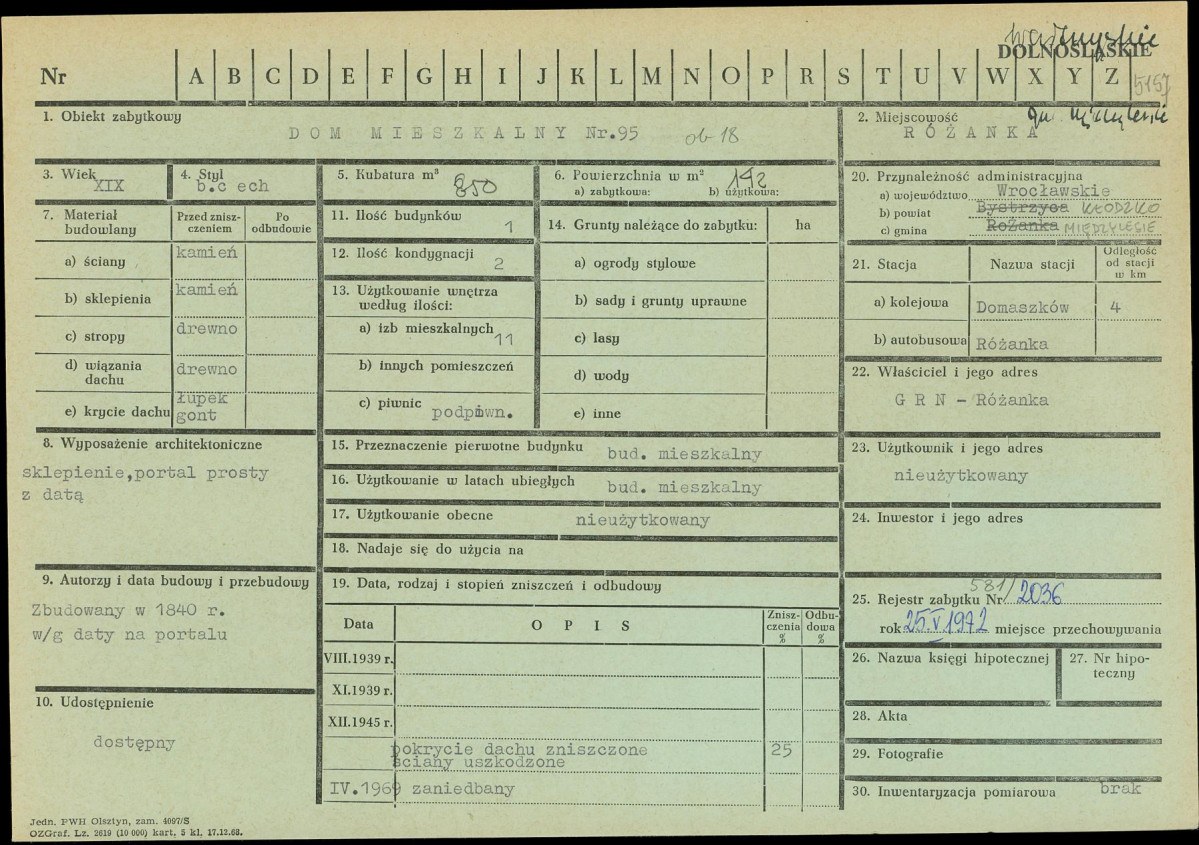 DOLNOŚLĄSKIE
Nr A B C D E F G H I J K L M N O P R S T U V W X Y Z 5157
1. Obiekt zabytkowy
DOM MIESZKALNY Nr.95 ob 18
2. Miejscowość
RÓŻANKA
3. Wiek
XIX
4. Styl
b.c ech
5. Kubatura m³ 850
6. Powierzchnia w m² 142
a) zabytkowa: b) użytkowa:
7. Materiał budowlany
Przed zniszczeniem
Po odbudowie
a) ściany kamień
b) sklepienia kamień
c) stropy drewno
d) wiązania dachu drewno
e) krycie dachu łupek gont
8. Wyposażenie architektoniczne
sklepienie,portal prosty
z datą
9. Autorzy i data budowy i przebudowy
Zbudowany w 1840 r.
w/g daty na portalu
10. Udostępnienie
dostępny
11. Ilość budynków 1
12. Ilość kondygnacji 2
13. Użytkowanie wnętrza
według ilości:
a) izb mieszkalnych 11
b) innych pomieszczeń
c) piwnic podpiwn.
14. Grunty należące do zabytku: ha
a) ogrody stylowe
b) sady i grunty uprawne
c) lasy
d) wody
e) inne
15. Przeznaczenie pierwotne budynku bud. mieszkalny
16. Użytkowanie w latach ubiegłych bud. mieszkalny
17. Użytkowanie obecne nieużytkowany
18. Nadaje się do użycia na
19. Data, rodzaj i stopień zniszczeń i odbudowy
Data OPIS Zniszczenia % Odbudowa %
VIII.1939 r.
XI.1939 r.
XII.1945 r.
pokrycie dachu zniszczone 25
ściany uszkodzone
IV.1969 zaniedbany
20. Przynależność administracyjna
a) województwo Wrocławskie
b) powiat Bystrzyca KŁODZKO
c) gmina Rożanka MIĘDZYLESIE
21. Stacja Nazwa stacji Odległość od stacji w km
a) kolejowa Domaszków 4
b) autobusowa Różanka
22. Właściciel i jego adres
G R N - Różanka
23. Użytkownik i jego adres
nieużytkowany
24. Inwestor i jego adres
25. Rejestr zabytku Nr 581/2036
rok 25.V 1972 miejsce przechowywania
26. Nazwa księgi hipotecznej
27. Nr hipoteczny
28. Akta
29. Fotografie
30. Inwentaryzacja pomiarowa brak
Jedn. PWH Olsztyn, zam. 4097/S
OZGraf. Lz. 2619 (10 000) kart. 5 kl. 17.12.68.